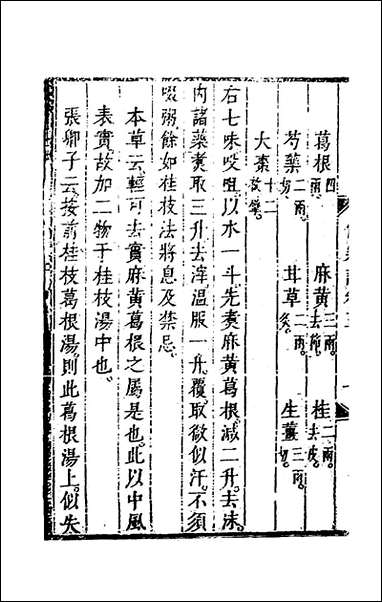 葛根四兩。 麻黃三兩。去節。 桂二兩。去皮。
芍藥二兩。切。 甘草二兩。炙。 生薑三兩。切。
大棗十二枚。擘。
右七味㕮咀。以水一斗。先煑麻黃葛根。減二升去沫。
內諸藥。煑取三升。去滓。溫服一升。覆。取微似汗。不須
啜粥。餘如桂枝法將息及禁忌。
本草云。輕可去實。麻黃葛根之屬是也。此以中風
表實。故加二物于桂枝湯中也。
張卿子云。按前桂枝葛根湯。則此葛根湯上。似失